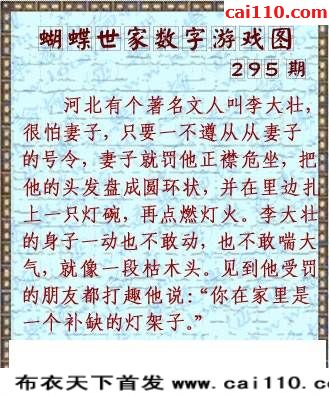 cai110.com
蝴蝶世家数字游戏图
295期
河北有个著名文人叫李大壮，
很怕妻子，只要一不遵从从妻子
的号令，妻子就罚他正襟危坐，把
他的头发盘成圆环状，并在里边扎
上一只灯碗，再点燃灯火。李大壮
的身子一动也不敢动，也不敢喘大
气，就像一段枯木头。见到他受罚
的朋友都打趣他说：“你在家里是
一个补缺的灯架子。”
布衣天下首发 www.cai110.com